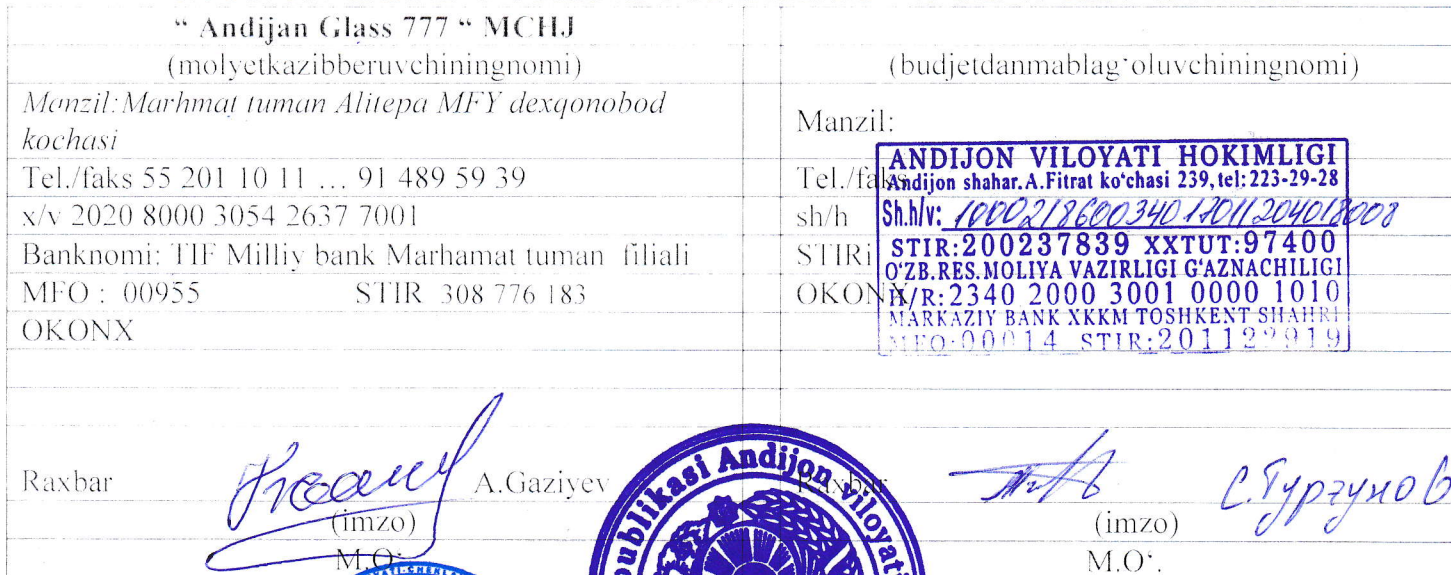 “ Andijan Glass 777 “ MCHJ
(molyetkazibberuvchiningnomi)
Manzil: Marhmat tuman Alitepa MFY dexqonobod
kochasi
Tel./faks 55 201 10 11 ... 91 489 59 39
x/v 2020 8000 3054 2637 7001
Banknomi: TIF Milliy bank Marhamat tuman filiali
MFO : 00955 STIR 308 776 183
OKONX
Raxbar A.Gaziyev
(imzo)
M.O‘.
(budjetdanmablag‘oluvchiningnomi)
Manzil:
Tel./faks
sh/h
STIRi
OKONX
ANDIJON VILOYATI HOKIMLIGI
Andijon shahar. A.Fitrat ko‘chasi 239, tel: 223-29-28
Sh.h/v: 100021860034017011204018008
STIR:200237839 XXTUT:97400
O‘ZB.RES.MOLIYA VAZIRLIGI G‘AZNACHILIGI
H/R: 2340 2000 3001 0000 1010
MARKAZIY BANK XKKM TOSHKENT SHAHRI
MFO:00014 STIR:201122919
Raxbar С.Турзунов
(imzo)
M.O‘.
publikasi Andijon viloyati